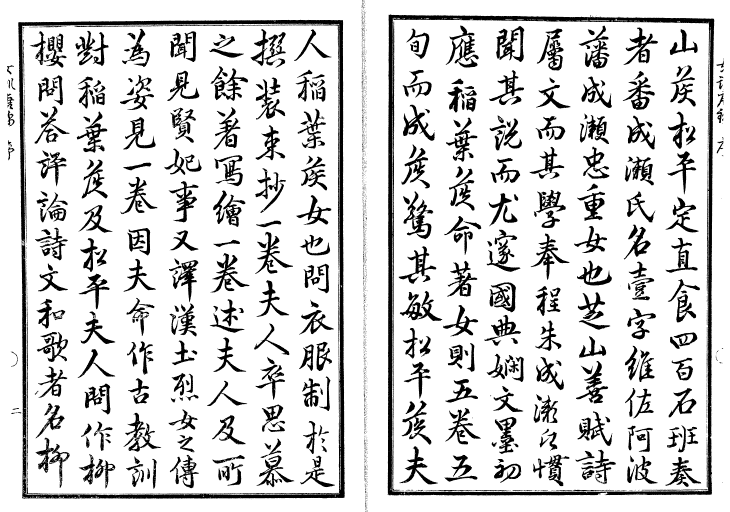 山矦松平定直食四百石班奏
者番成瀬氏名壹字維佐阿波
藩成瀬忠重女也芝山善賦詩
屬文而其學奉程朱成瀬氏慣
聞其說而尤邃國典嫻文墨初
應稲葉矦命著女則五巻五
旬而成矦驚其敏松平矦夫
人稲葉矦女也問衣服制於是
撰装束抄一巻夫人卒思慕
之餘著寫繪一巻述夫人及所
聞見賢妃事又譯漢土烈女之傳
為姿見一巻因夫命作古教訓
對稲葉矦及松平夫人問作柳
櫻問答評論詩文和歌者名柳
二